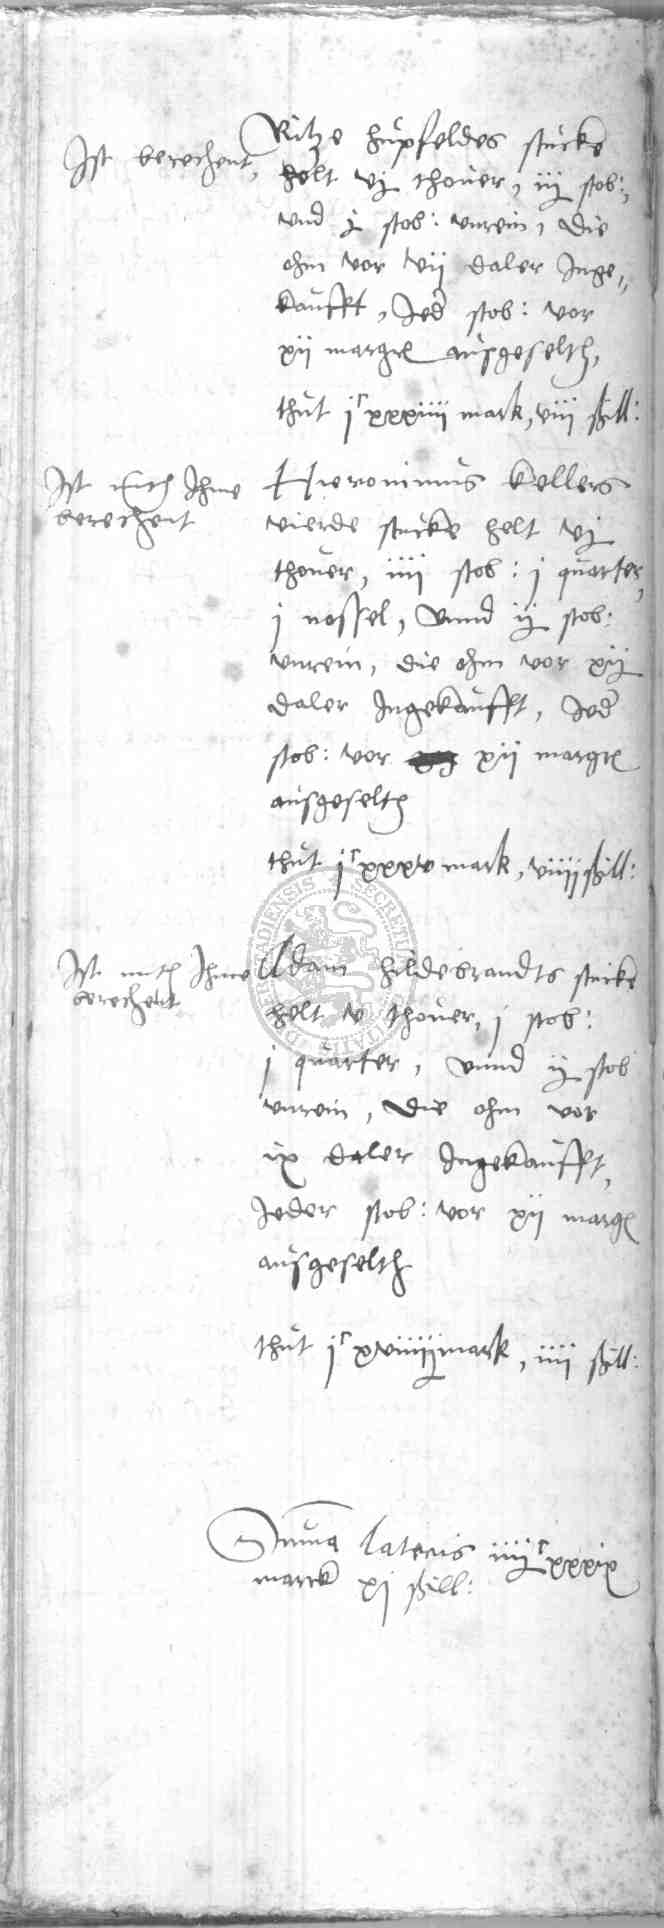 Ist berechent,
Ritze hupfeldes stucke
helt vj thouer, iij stob:,
vnd j stob: vnrein, die
ohm vor vij daler Inge„
kaufft, Jed stob: vor
xij margr ausgeselth,
thut jc xxxiiii mark, viii ßill:
Ist mith Ihme
berechent
Hieronimus Kellers
vierde stucke helt vj
thouer, iiii stob: j quarter,
j nossel, Vnnd ij stob:
vnrein, die ohm vor xij
daler Ingekaufft, Jed
stob: vor xij margr
ausgeselth
thut jc xxxv mark, viiij ßill:
Ist mith Ihme
berechent
Adam hildebrandts stucke
helt v thouer, j stob:
j quarter, vnnd ij stob
vnrein, die ohm vor
ix daler Ingekaufft,
Jeder stob: vor xij marg
ausgeselth
thut jc xviiiij mark, iiii ßill:
Suma lateris iiijc xxxix
marck xj ßill:
SECRETUM